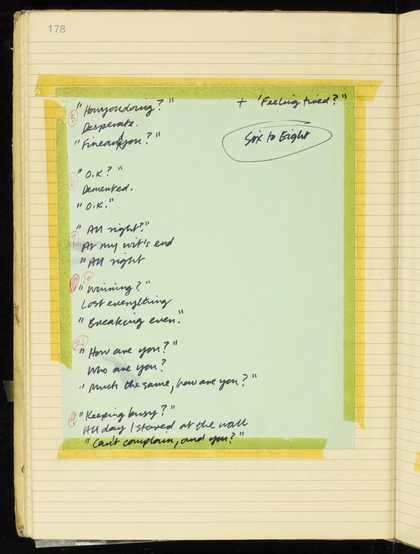 178
"Howyoudoing?"
+ 'Feeling tired?"
Desperate.
"Fineandyou?"
Six to Eight
"O.K?"
Demented.
"O.K."
"All right?"
At my wit's end
"All right
"Winning?"
Lost everything
"Breaking even."
"How are you?"
Who are you?
"Much the same, how are you?"
"Keeping busy?"
All day I stared at the wall
"Can't complain, and you?"